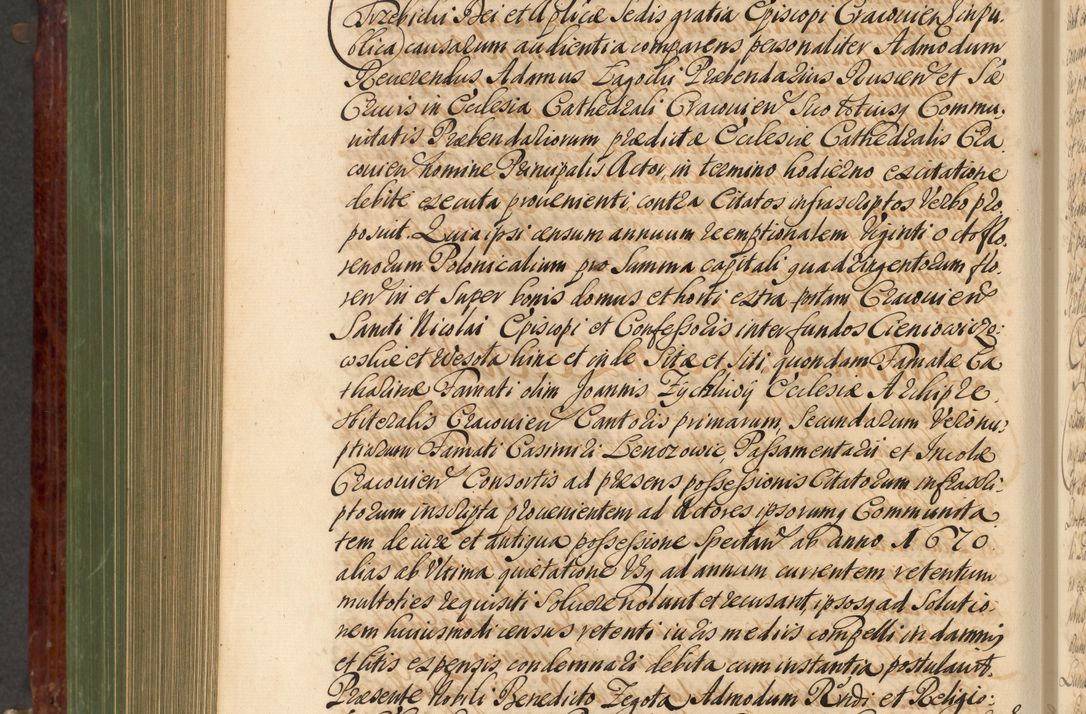 Trzebicki Dei et Aplicæ Sedis gratia Episcopi Cracouien in pu:
blica causarum audientia comparens personaliter Admodum
Reuerendus Adamus Zagocki Præbendarius Ruscen et Sæ
Crucis in Ecclesia Cathedrali Cracouien Suo totiusq Commu:
nitatis Præbendariorum prædictæ Ecclesiæ Cathedralis Cra
couien nomine Principalis Actor, in termino hodierno ex citatione
debite executa prouenienti contra Citatos infrascriptos Verbo pro
posuit. Quia ipsi censum annuum reemptionalem Viginti octo flo.
renorum Polonicalium pro Summa capitali quadringentorum flo.
ren in et Super bonis domus et horti extra portam Cracouien
Sancti Nicolai Episcopi et Confessoris inter fundos Cieniowiczo:
wskie et Wesota hinc et inde Sitæ et Siti, quondam Famatæ Ca
tharinæ Famati olim Joannis Zychlinsÿ Ecclesiæ Archipre.
sbiteralis Cracouien Cantoris primarum, Secundarum Vero nu:
ptiarum Famati Casimiri Benozowic Passamentarii et Incolæ
Cracouien Consortis ad præsens possessionis Citatorum infrascri:
ptorum inscripta prouenientem ad Actores ipsorumq Communita
tem de iure et antiqua possessione Spectan ab anno 1670.
alias ab Vltima quietatione Vsq ad annum currentem retentum
multoties requisiti Soluere nolunt et recusant, ipsosq ad Solutio:
nem huiusmodi census retenti iuris mediis compelli in damnis
et litis expensis condemnari debita cum instantia postulauit.
Præsente Nobili Benedicto Zegota Admodum Rndi et Religio: